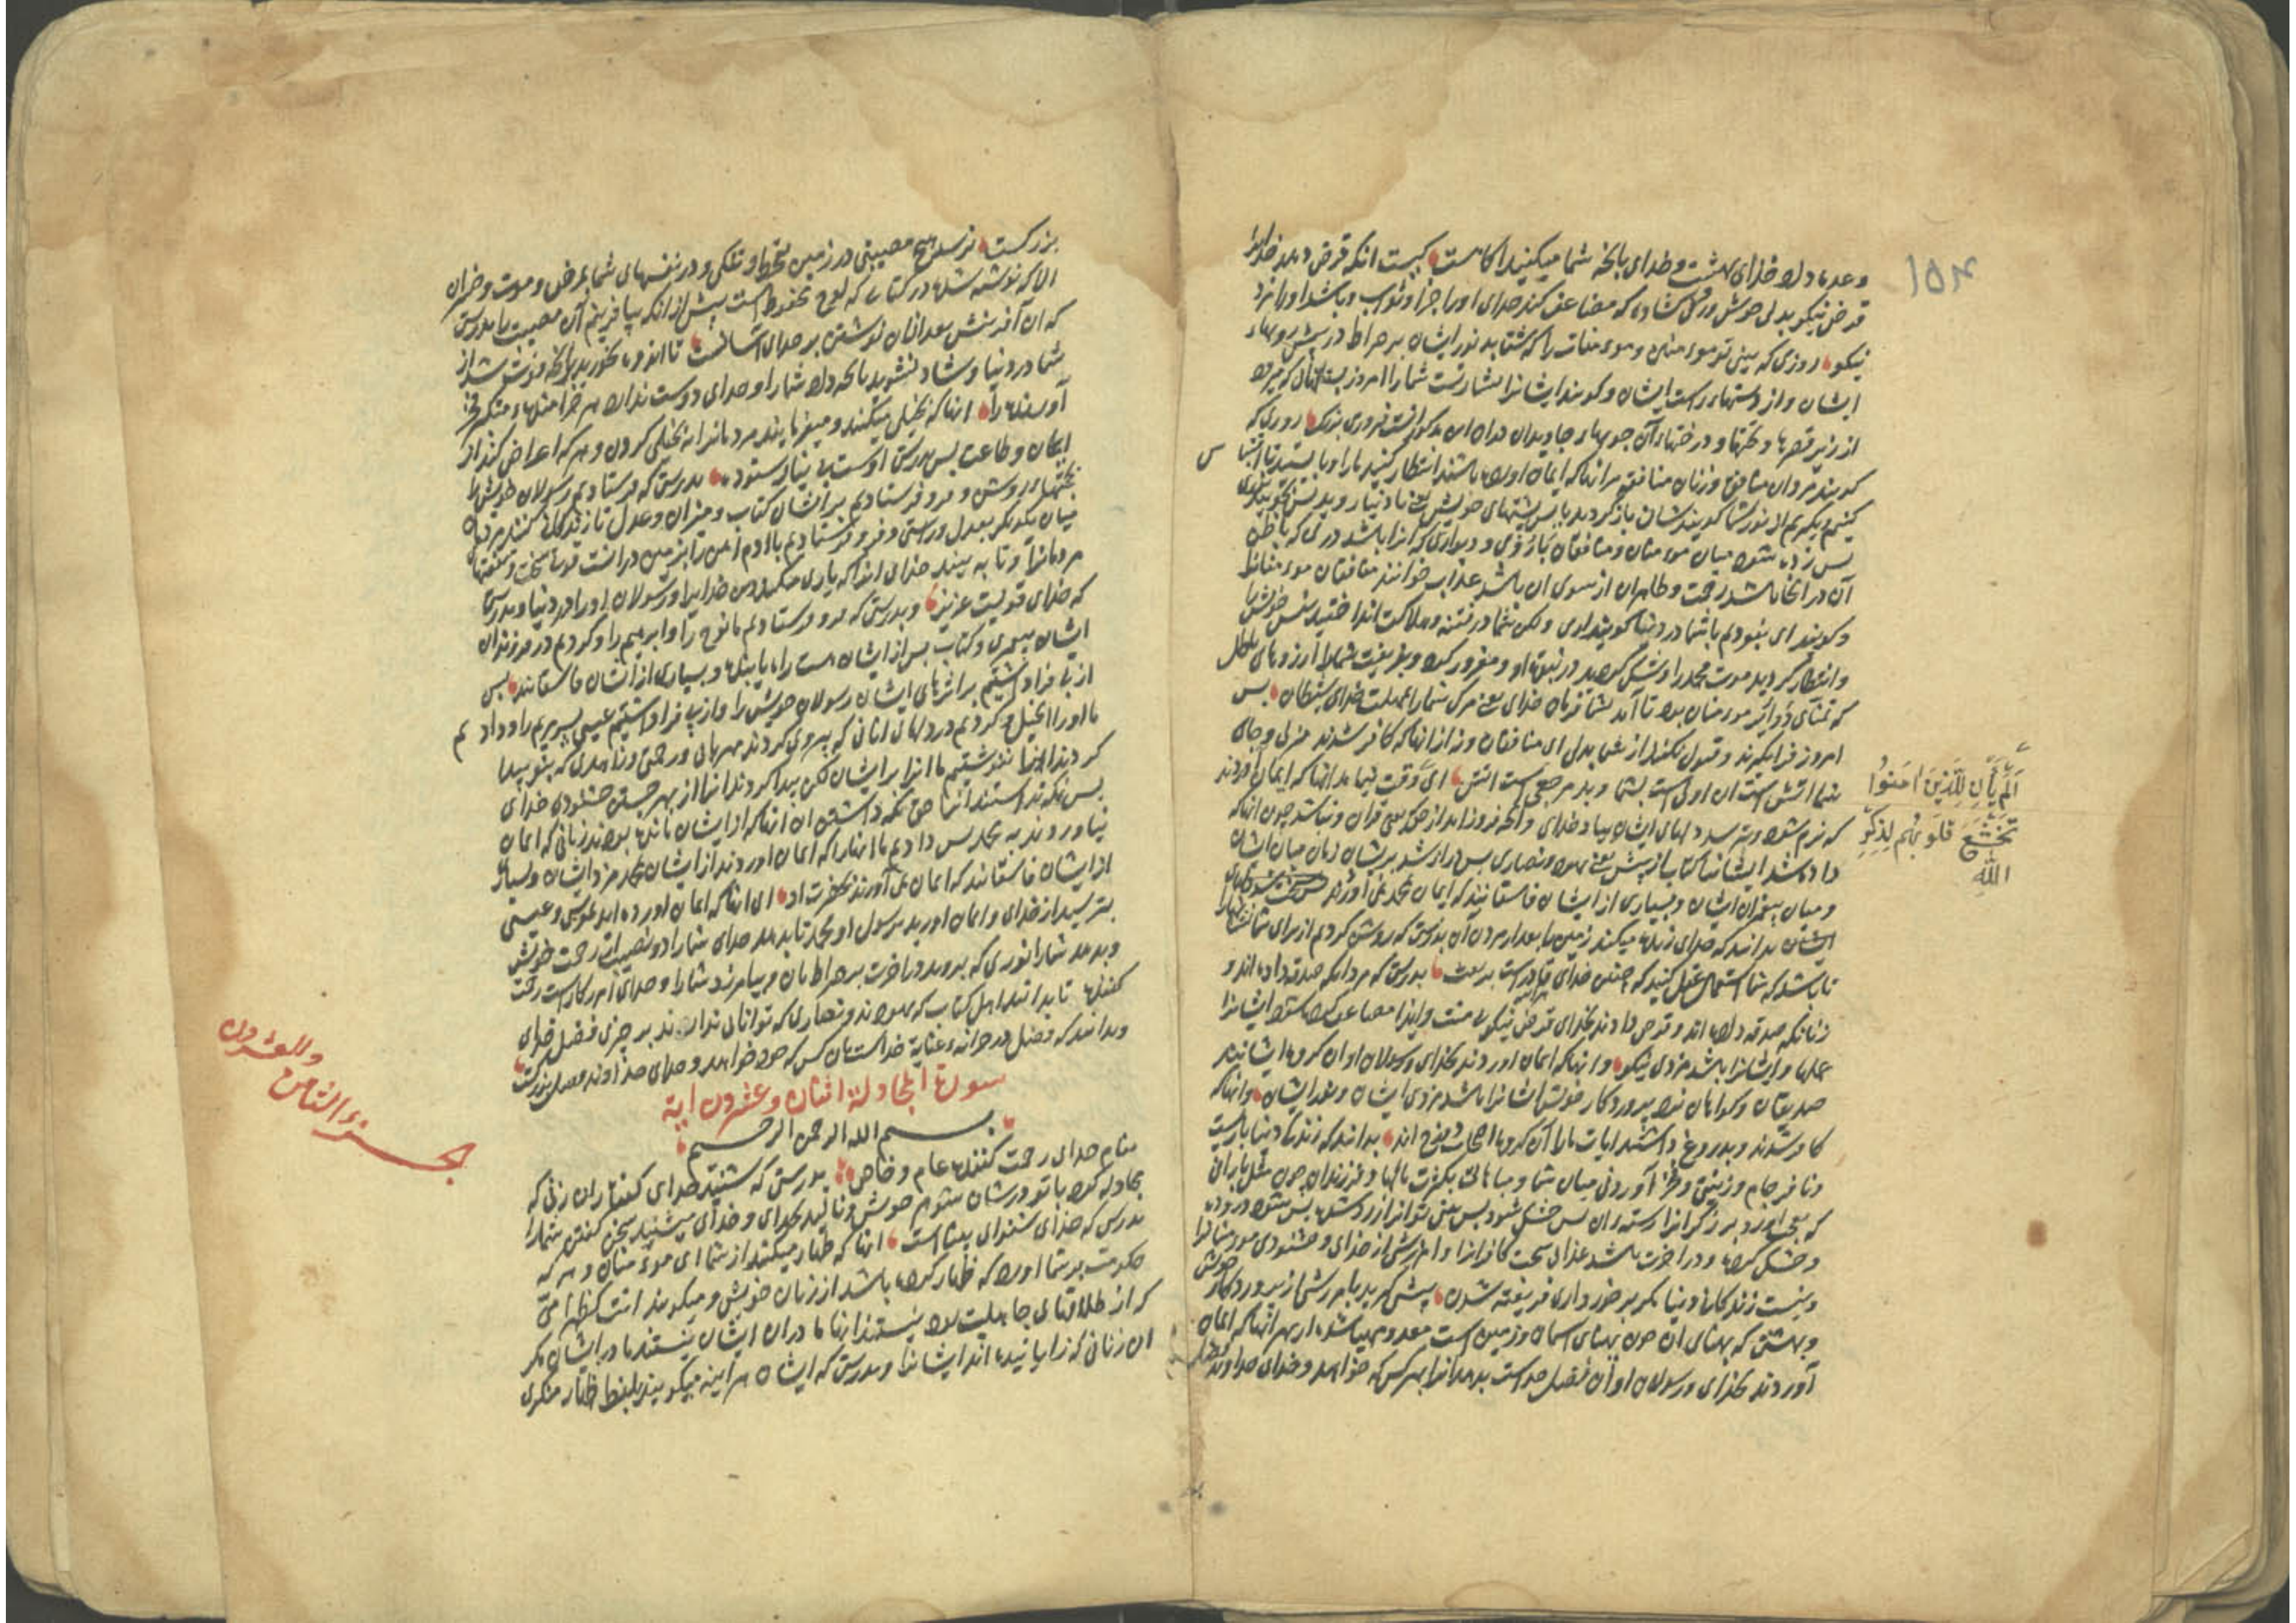 ۱۵۴
وعده داده خدای بهشت و خدای بانچه شما میکنید اکاهست کیست انکه قرض دهد خدایرا
قرض نیکو بدلی خوش و رکی کشاده که مضاعف کند خدای او را جزا و ثواب و باشد او را مزد
نیکو روزی که بینی تو موء منان و موء منات را که شتابد نور ایشان بر صراط در پیش رویهاء
ایشان و از دستهاء راست ایشان و کویند ایشانرا بشارتست شما را امروز بستانهای که میرود
از زیر قصرها و تختها و درختهاء آن جویهاء جاویدان دران این مذکور انست فیروزی بزرک روزی که
کویند مردان منافق و زنان منافق مر انها که ایمان اورده باشند انتظار کنید ما را و بایستید تا اقتباس
کنیم و بکیریم از نور شما کویند شان باز کردید باپس پشتهای خویش یعنی با دنیا و پس بجویید نوری
پس زده شود میان موء منان و منافقان بارؤی و دیواری که انرا باشد دری که باطن
آن در انجا باشد رحمت و ظاهر ان از سوی ان باشد عذاب خوانند منافقان موء منانرا
و کویند ای نبودیم با شما در دنیا کویند اری ولکن شما در فتنه و هلاکت انداختید نفس خویش را
و انتظار کردید موت محمد را و شک کردید در نبوت او و مغرور کرد و بفریفت شما را آرزوهای باطل
که تمنای دوایر موء منان بود تا آمد بشما فرمان خدای یعنی مرک شما را بمهلت خدای شیطان پس
امروز فرا نکیرند و قبول نکنند از شما بدلی ای منافقان و نه از انها که کافر شدند منزل و جای
شما اتش است ان اولی است بشما و بد مرجعی است اتش ای وقت نیامد انها که ایمان آوردند
که نرم شود و بترسد دلهای ایشان بیاد خدای و انچه فرود آمد از حق یعنی قران و نباشند چون انها که
داده شد ایشانرا کتاب از پیش یعنی یهود و نصاری پس دراز شد بر ایشان زمان میان ایشان
و میان پیغمبران ایشان و بسیاری از ایشان فاسقانند که ایمان بمحمد نمی آورند
ایشان بدانید که خدای زنده میکند زمین را بعد از مردن آن بدرستی که روشن کردیم از برای شما نشانها را
تا باشد که شما استعمال عقل کنید که چنین خدای قادر است بر بعث بدرستی که مردانکه صدقه داده اند و
زنانکه صدقه داده اند و قرض دادند بخدای قرض نیکو بی منت و ایذا مضاعف کرده شود ایشانرا
عملها و ایشانرا باشد مزدی نیکو و انها که ایمان اوردند بخدای و رسولان او ان کروه ایشانند
صدیقان و کواهان نزد پروردکار خویش ایشانرا باشد مزدی ایشان و نور ایشان و انها که
کافر شدند و بدروغ داشتند ایات ما را آن کروه اصحاب دوزخ اند بدانید که زندکی دنیا بازیست
و نافرجام و زینتی و فخر آوردنی میان شما و مباهاتی بکثرت مالها و فرزندان چون مثل بارانی
که بعجب اورد برزکرانرا رستهء ان پس خشک شود پس بینی تو انرا زرد شده پس شود درود
و خشک کرده و در اخرت باشد عذابی سخت کافرانرا و امرزشی از خدای و خشنودی موء منانرا
و نیست زندکانی دنیا مکر برخورداری فریفته شدن پیشی کیرید بامرزشی از پروردکار خویش
و بهشتی که پهنای ان چون پهنای اسمان و زمین است معد و مهیا شده از بهر انها که ایمان
آوردند بخدای و رسولان او آن فضل خداست بدهد انرا بهر کس که خواهد و خدای خداوند فضل
اَلَمْ یَأْنِ لِلَّذِینَ اٰمَنُوا
تَخْشَعَ قُلُوبُهُم لِذِکْرِ
اللّٰهِ
بزرکست نرسد هیچ مصیبتی در زمین بقحط و تنکی و در نفسهای شما بمرض و موت و خسران
الا که نوشته شده در کتابی که لوح محفوظ است پیش از انکه بیافرینیم آن مصیبت را بدرستی
که ان آفرینش بعد از ان نوشتن بر خدای اسانست تا اندوه نخورید بر انچه فوت شد از
شما در دنیا و شاد نشوید بانچه داد شما را و خدای دوست ندارد هر خرامندهء متکبر فخر
آورنده را انها که بخیلی میکنند و میفرمایند مردمانرا به بخیلی کردن و هر که اعراض کند از
ایمان و طاعت پس بدرستی اوست بی نیاز ستوده بدرستی که فرستادیم رسولان خویش را
بحجتهاء روشن و فرو فرستادیم بر ایشان کتاب و میزان و عدل تا زندکانی کنند مردمان
میان یکدیکر بعدل و راستی و فرو فرستادیم با ادم آهن را بزمین در انست قوتی سخت و منفعتها
مردمانرا و تا به بیند خدای انرا که یاری میکند دین خدایرا و رسولان او را در دنیا و بدرستی
که خدای قویست عزیز و بدرستی که فرو فرستادیم ما نوح را و ابرهیم را و کردیم در فرزندان
ایشان پیغمبری و کتاب پس از ایشان هست راه یابنده و بسیاری از ایشان فاسقانند پس
از پی فرا داشتیم بر اثرهای ایشان رسولان خویش را و از پی فرا داشتیم عیسی پسر مریم را و دادیم
ما او را انجیل و کردیم در دلهای انانی که پیروی کردند مهربانی و رحمتی و زاهدی که بنو پیدا
کردند انرا ننوشتیم ما انرا بر ایشان لکن پیدا کردند انرا از بهر جستن خشنودی خدای
پس نکه نداشتند انرا حق نکه داشتن ان انها که از ایشان مانده بودند زمانی که ایمان
نیاوردند به محمد پس دادیم ما انها را که ایمان اوردند از ایشان بمحمد مزد ایشان و بسیار
از ایشان فاسقانند که ایمان نمی آورند بحضرت او ای انها که ایمان اورده اید بموسی و عیسی
بترسید از خدای و ایمان اورید برسول او محمد تا بدهد خدای شما را دو نصیب از رحمت خویش
و بدهد شما را نوری که بروید در اخرت بر صراط بان و بیامرزد شما را و خدای آمرزکار است رحمت
کننده تا بدانند اهل کتاب که یهودند و نصاری که توانائی ندارند بر چیزی فضل خدای
و بدانید که فضل در خزانهء عنایة خداست بان کس که خود خواهد و خدای خداوند فضل بزرکست
سورة المجادلة اثنان وعشرون ایة
بسم الله الرحمن الرحیم
بنام خدای رحمت کننده عام و خاص بدرستی که شنید خدای کفتار ان زنی که
مجادله کرد با تو در شان شوهر خویش و نالید بخدای و خدای میشنید سخن کفتن شما را
بدرستی که خدای شنوای بیناست انها که ظهار میکنند از شما ای موء منان و هر که
حکومت بر شما اورد که ظهار کرده باشد از زنان خویش و میکویند انت کظهر امی
که از طلاقهای جاهلیت بود نیستند انها مادران ایشان نیستند مادر ایشان مکر
ان زنانی که زایانیده اند ایشانرا و بدرستی که ایشان هر اینه میکویند بلفظ ظهار منکری
الجزء الثامن
والعشرون